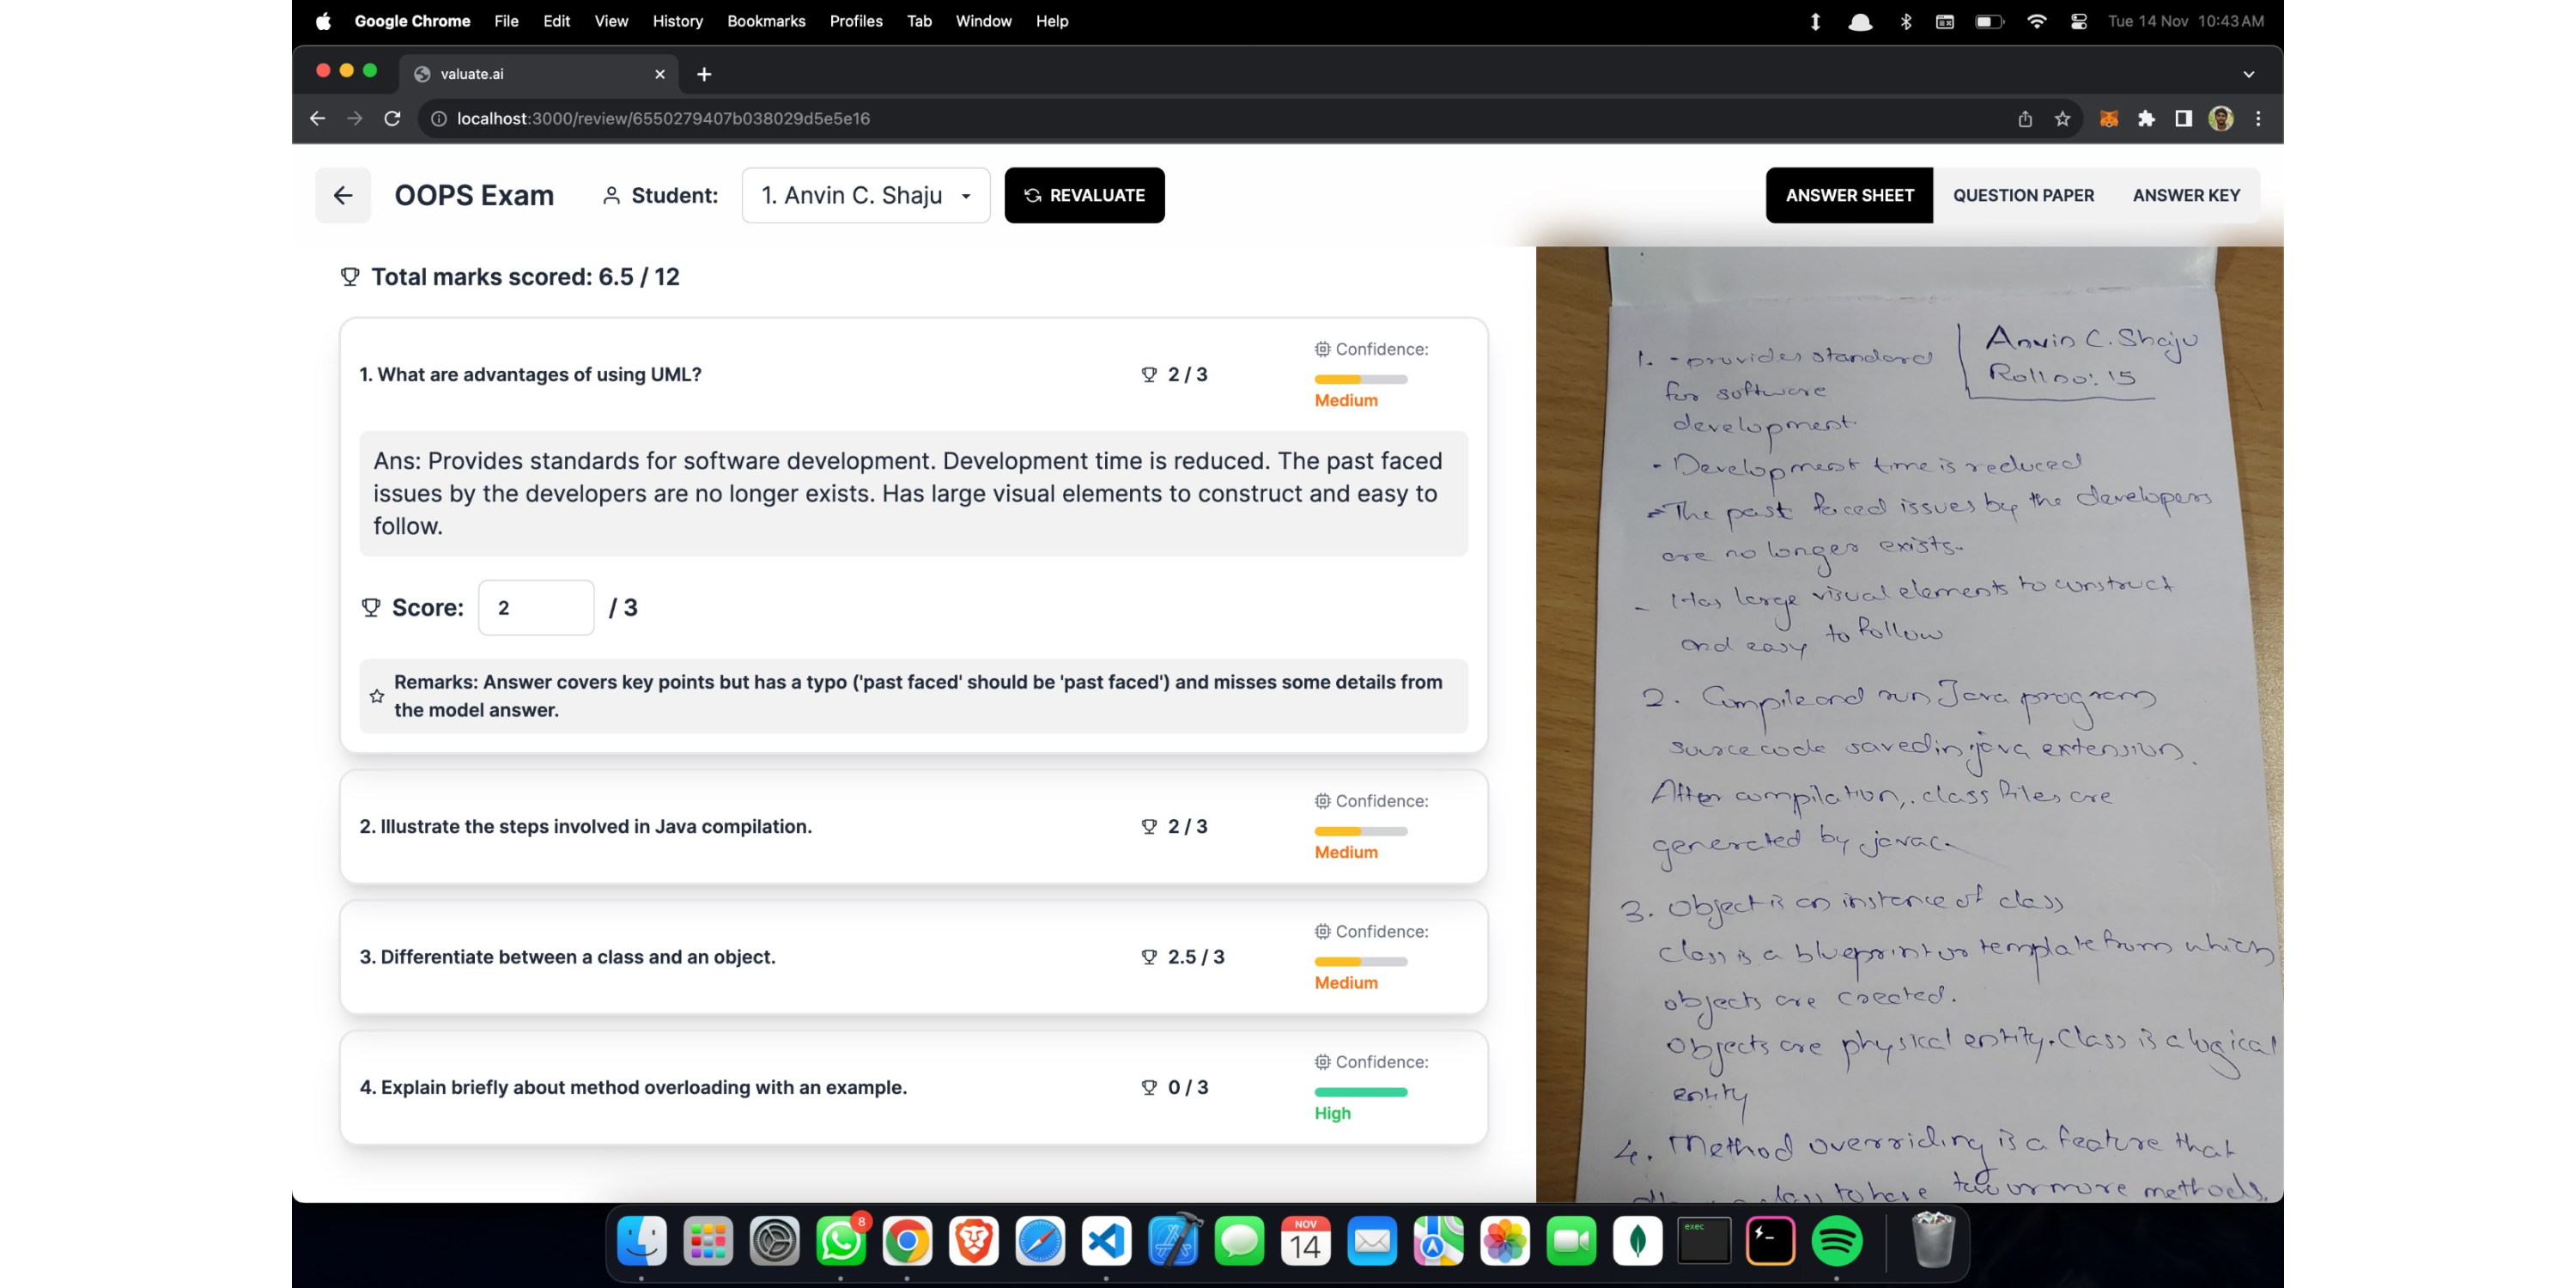 Google Chrome File Edit View History Bookmarks Profiles Tab Window Help
Tue 14 Nov 10:43 AM
valuate.ai
localhost:3000/review/6550279407b038029d5e5e16
OOPS Exam
Student:
1. Anvin C. Shaju
REVALUATE
ANSWER SHEET
QUESTION PAPER
ANSWER KEY
Total marks scored: 6.5 / 12
1. What are advantages of using UML?
2 / 3
Confidence:
Medium
Ans: Provides standards for software development. Development time is reduced. The past faced
issues by the developers are no longer exists. Has large visual elements to construct and easy to
follow.
Score:
2
/ 3
Remarks: Answer covers key points but has a typo ('past faced' should be 'past faced') and misses some details from
the model answer.
2. Illustrate the steps involved in Java compilation.
2 / 3
Confidence:
Medium
3. Differentiate between a class and an object.
2.5 / 3
Confidence:
Medium
4. Explain briefly about method overloading with an example.
0 / 3
Confidence:
High
Anvin C. Shaju
Roll no: 15
1. - provides standard
for software
development
- Development time is reduced
- The past faced issues by the developers
are no longer exists.
- Has large visual elements to construct
and easy to follow
2. Compile and run Java program
source code saved in .java extension.
After compilation, .class files are
generated by javac.
3. Object is an instance of class
Class is a blueprint or template from which
objects are created.
Objects are physical entity. Class is a logical
entity
4. Method overriding is a feature that
class to have two or more methods.
8
NOV
14
exec